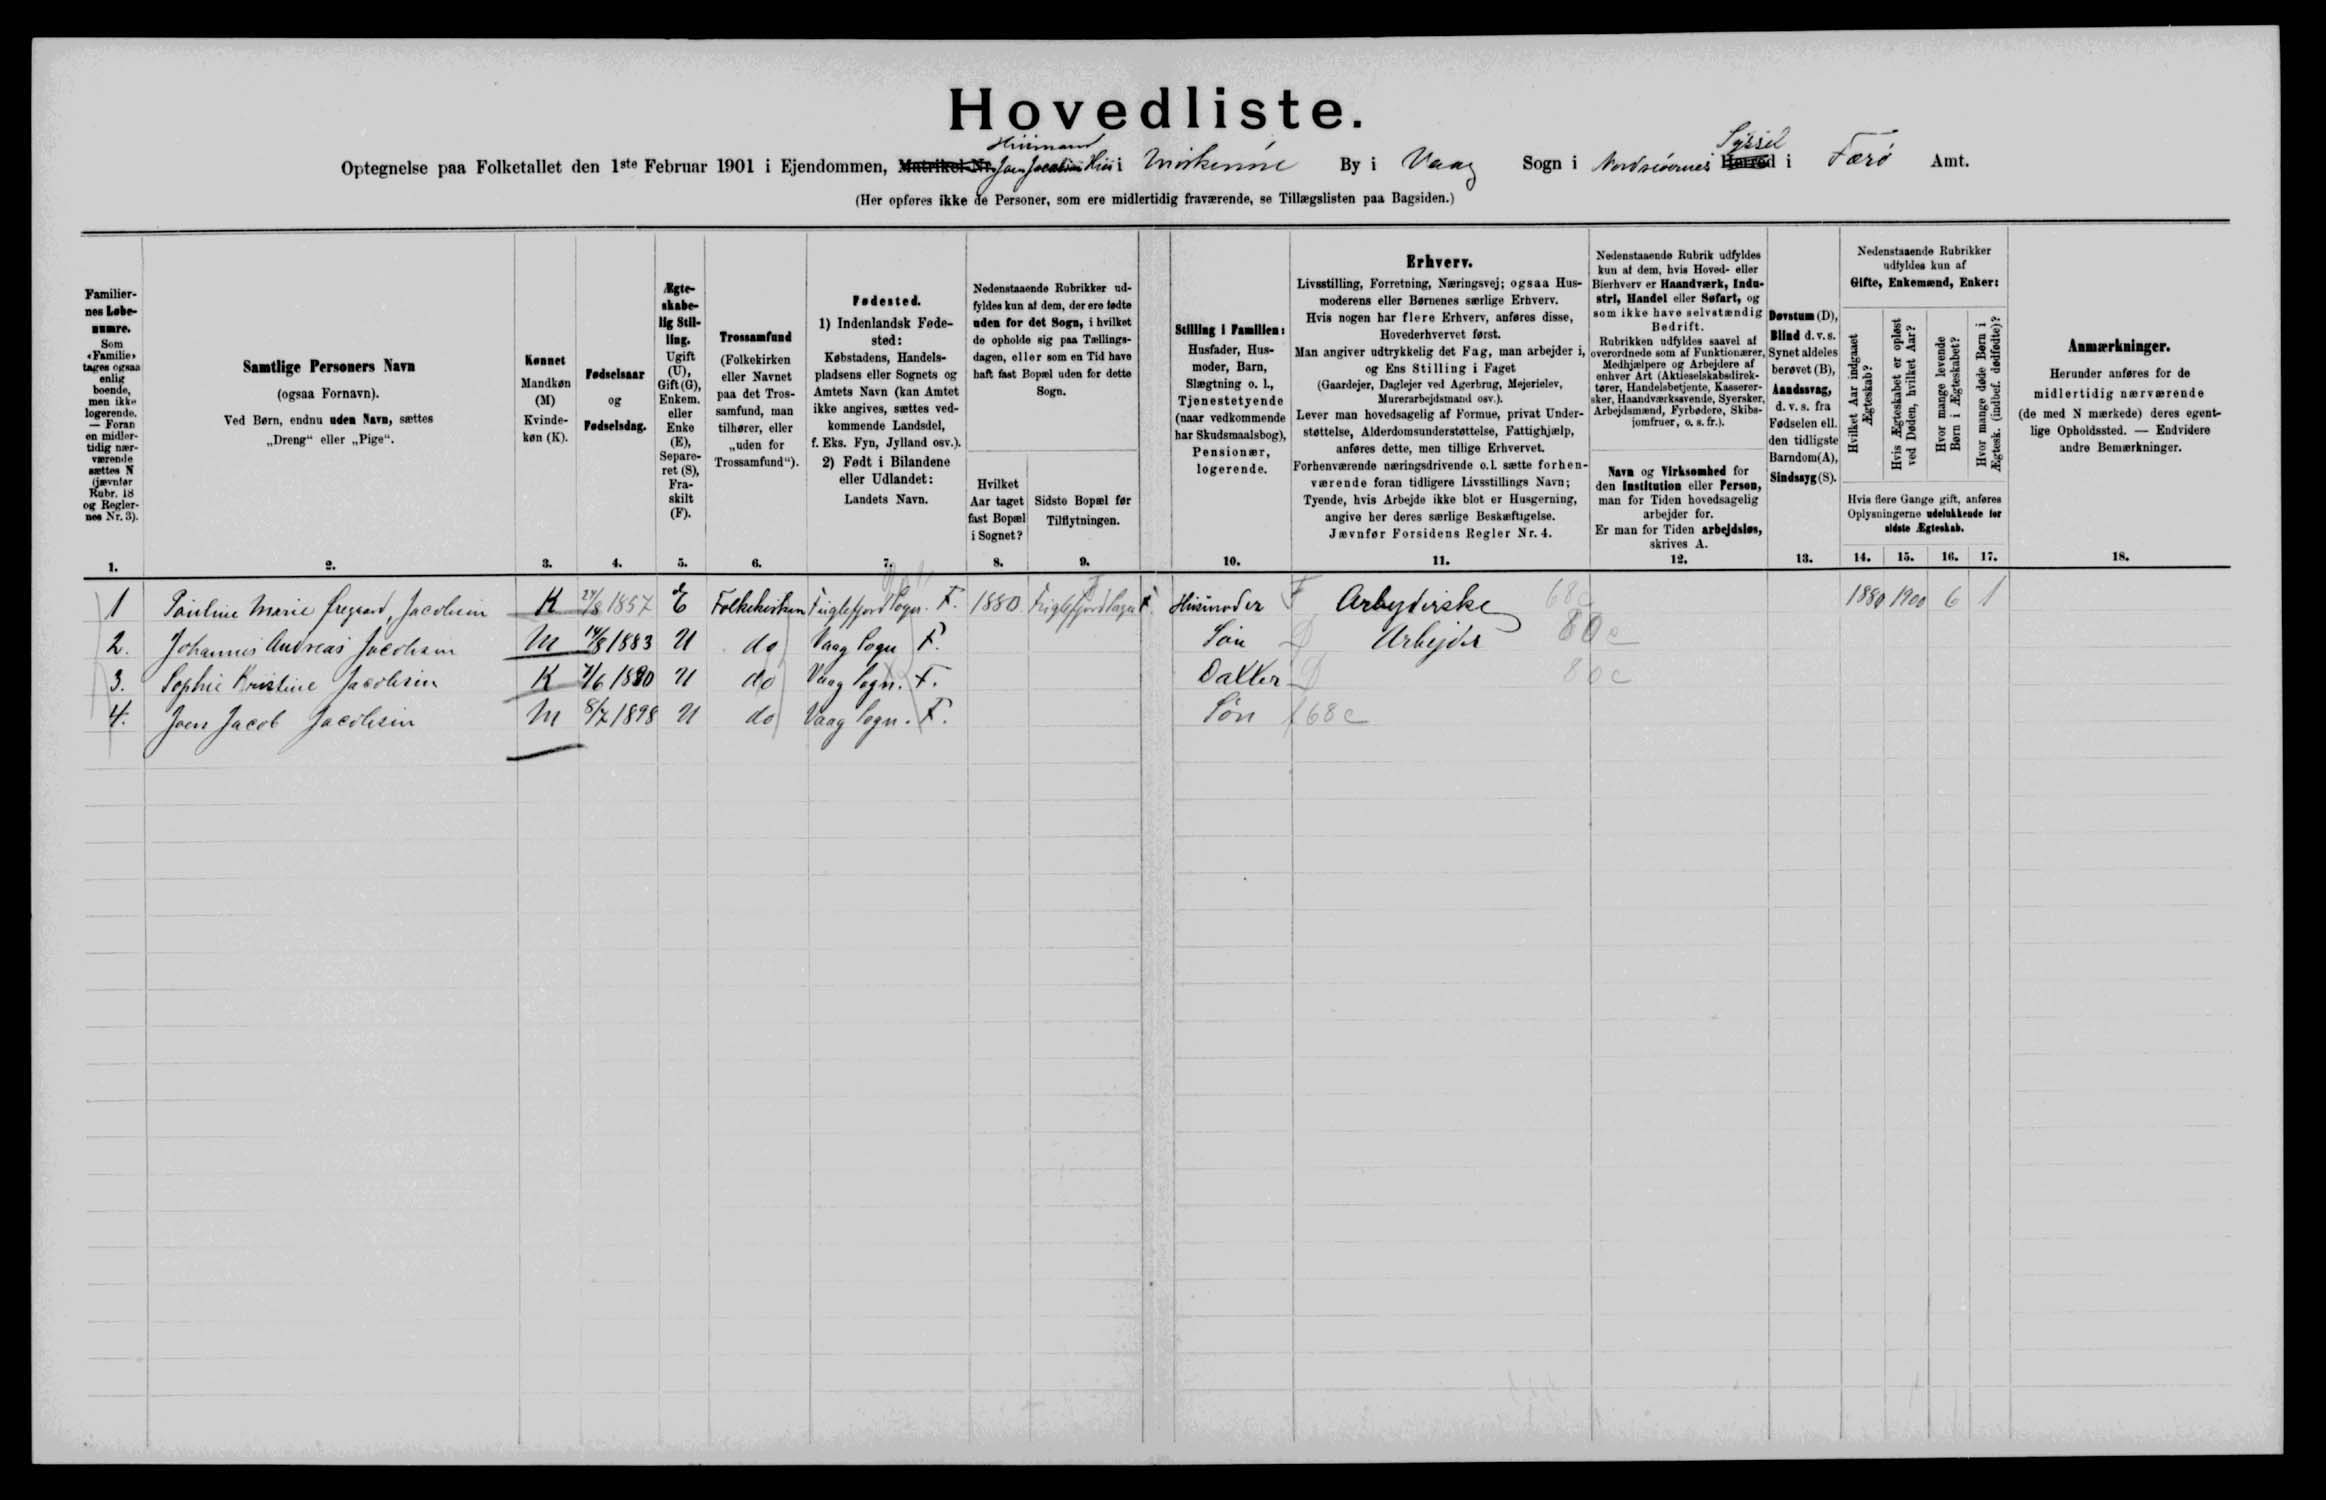 Hovedliste.
Huusmand
Syssel
Optegnelse paa Folketallet den 1ste Februar 1901 i Ejendommen, Matrikel-Nr. Joen Jacobsens Huus i By i Vaag Sogn i Norderøernes Herred i Færø Amt.
(Her opføres ikke de Personer, som ere midlertidig fraværende, se Tillægslisten paa Bagsiden.)
Familier-
nes Løbe-
numre.
Som
«Familie»
tages ogsaa
enlig
boende,
men ikke
logerende.
— Foran
en midler-
tidig nær-
værende
sættes N
(jævnfør
Rubr. 18
og Regler-
nes Nr. 3).
1.
Samtlige Personers Navn
(ogsaa Fornavn).
Ved Børn, endnu uden Navn, sættes
„Dreng“ eller „Pige“.
2.
Kønnet
Mandkøn
(M)
Kvinde-
køn (K).
3.
Fødselsaar
og
Fødselsdag.
4.
Ægte-
skabe-
lig Stil-
ling.
Ugift
(U),
Gift (G),
Enkem.
eller
Enke
(E),
Separe-
ret (S),
Fra-
skilt
(F).
5.
Trossamfund
(Folkekirken
eller Navnet
paa det Tros-
samfund, man
tilhører, eller
„uden for
Trossamfund“).
6.
Fødested.
1) Indenlandsk Føde-
sted:
Købstadens, Handels-
pladsens eller Sognets og
Amtets Navn (kan Amtet
ikke angives, sættes ved-
kommende Landsdel,
f. Eks. Fyn, Jylland osv.).
2) Født i Bilandene
eller Udlandet:
Landets Navn.
7.
Nedenstaaende Rubrikker ud-
fyldes kun af dem, der ere fødte
uden for det Sogn, i hvilket
de opholde sig paa Tællings-
dagen, eller som en Tid have
haft fast Bopæl uden for dette
Sogn.
Hvilket
Aar taget
fast Bopæl
i Sognet?
8.
Sidste Bopæl før
Tilflytningen.
9.
Stilling i Familien:
Husfader, Hus-
moder, Barn,
Slægtning o. l.,
Tjenestetyende
(naar vedkommende
har Skudsmaalsbog),
Pensionær,
logerende.
10.
Erhverv.
Livsstilling, Forretning, Næringsvej; ogsaa Hus-
moderens eller Børnenes særlige Erhverv.
Hvis nogen har flere Erhverv, anføres disse,
Hovederhvervet først.
Man angiver udtrykkelig det Fag, man arbejder i,
og Ens Stilling i Faget
(Gaardejer, Daglejer ved Agerbrug, Mejerielev,
Murerarbejdsmand osv.).
Lever man hovedsagelig af Formue, privat Under-
støttelse, Alderdomsunderstøttelse, Fattighjælp,
anføres dette, men tillige Erhvervet.
Forhenværende næringsdrivende o. l. sætte forhen-
værende foran tidligere Livsstillings Navn;
Tyende, hvis Arbejde ikke blot er Husgerning,
angive her deres særlige Beskæftigelse.
Jævnfør Forsidens Regler Nr. 4.
11.
Nedenstaaende Rubrik udfyldes
kun af dem, hvis Hoved- eller
Bierhverv er Haandværk, Indu-
stri, Handel eller Søfart, og
som ikke have selvstændig
Bedrift.
Rubrikken udfyldes saavel af
overordnede som af Funktionærer,
Medhjælpere og Arbejdere af
enhver Art (Aktieselskabsdirek-
tører, Handelsbetjente, Kasserer-
sker, Haandværkssvende, Syersker,
Arbejdsmænd, Fyrbødere, Skibs-
jomfruer, o. s. fr.).
Navn og Virksomhed for
den Institution eller Person,
man for Tiden hovedsagelig
arbejder for.
Er man for Tiden arbejdsløs,
skrives A.
12.
Døvstum (D),
Blind d. v. s.
Synet aldeles
berøvet (B),
Aandssvag,
d. v. s. fra
Fødselen ell.
den tidligste
Barndom (A),
Sindssyg (S).
13.
Nedenstaaende Rubrikker
udfyldes kun af
Gifte, Enkemænd, Enker:
Hvilket Aar indgaaet
Ægteskab?
Hvis Ægteskabet er opløst
ved Døden, hvilket Aar?
Hvor mange levende
Børn i Ægteskabet?
Hvor mange døde Børn i
Ægtesk. (indbef. dødfødte)?
Hvis flere Gange gift, anføres
Oplysningerne udelukkende for
sidste Ægteskab.
14. 15. 16. 17.
Anmærkninger.
Herunder anføres for de
midlertidig nærværende
(de med N mærkede) deres egent-
lige Opholdssted. — Endvidere
andre Bemærkninger.
18.
1 Pauline Marie Jacobsen K 24/8 1857 E Folkekirken Fuglefjord Sogn. F. 1880 Fuglefjord Sogn F. Huusmoder F Arbejderske 68c 1880 1900 6 1
2. Johannes Andreas Jacobsen M 14/8 1883 U do Vaag Sogn F. Søn D Arbejder 80c
3. Sophie Kristine Jacobsen K U do Vaag Sogn. F. Datter D 80c
4. Joen Jacob Jacobsen M 8/7 1898 U do Vaag Sogn. F. Søn 68c